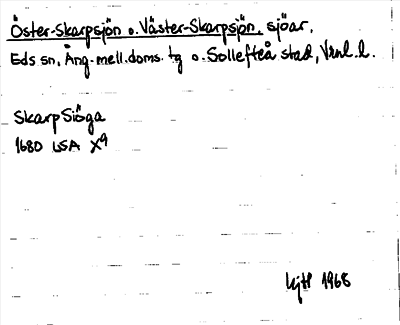 Öster-Skarpsjön o. Väster-Skarpsjön, sjöar,
Eds sn, Ång. mell. doms. tg o. Sollefteå stad, Vrnl. l.
Skarp Siöga
1680 LSA X9
1968